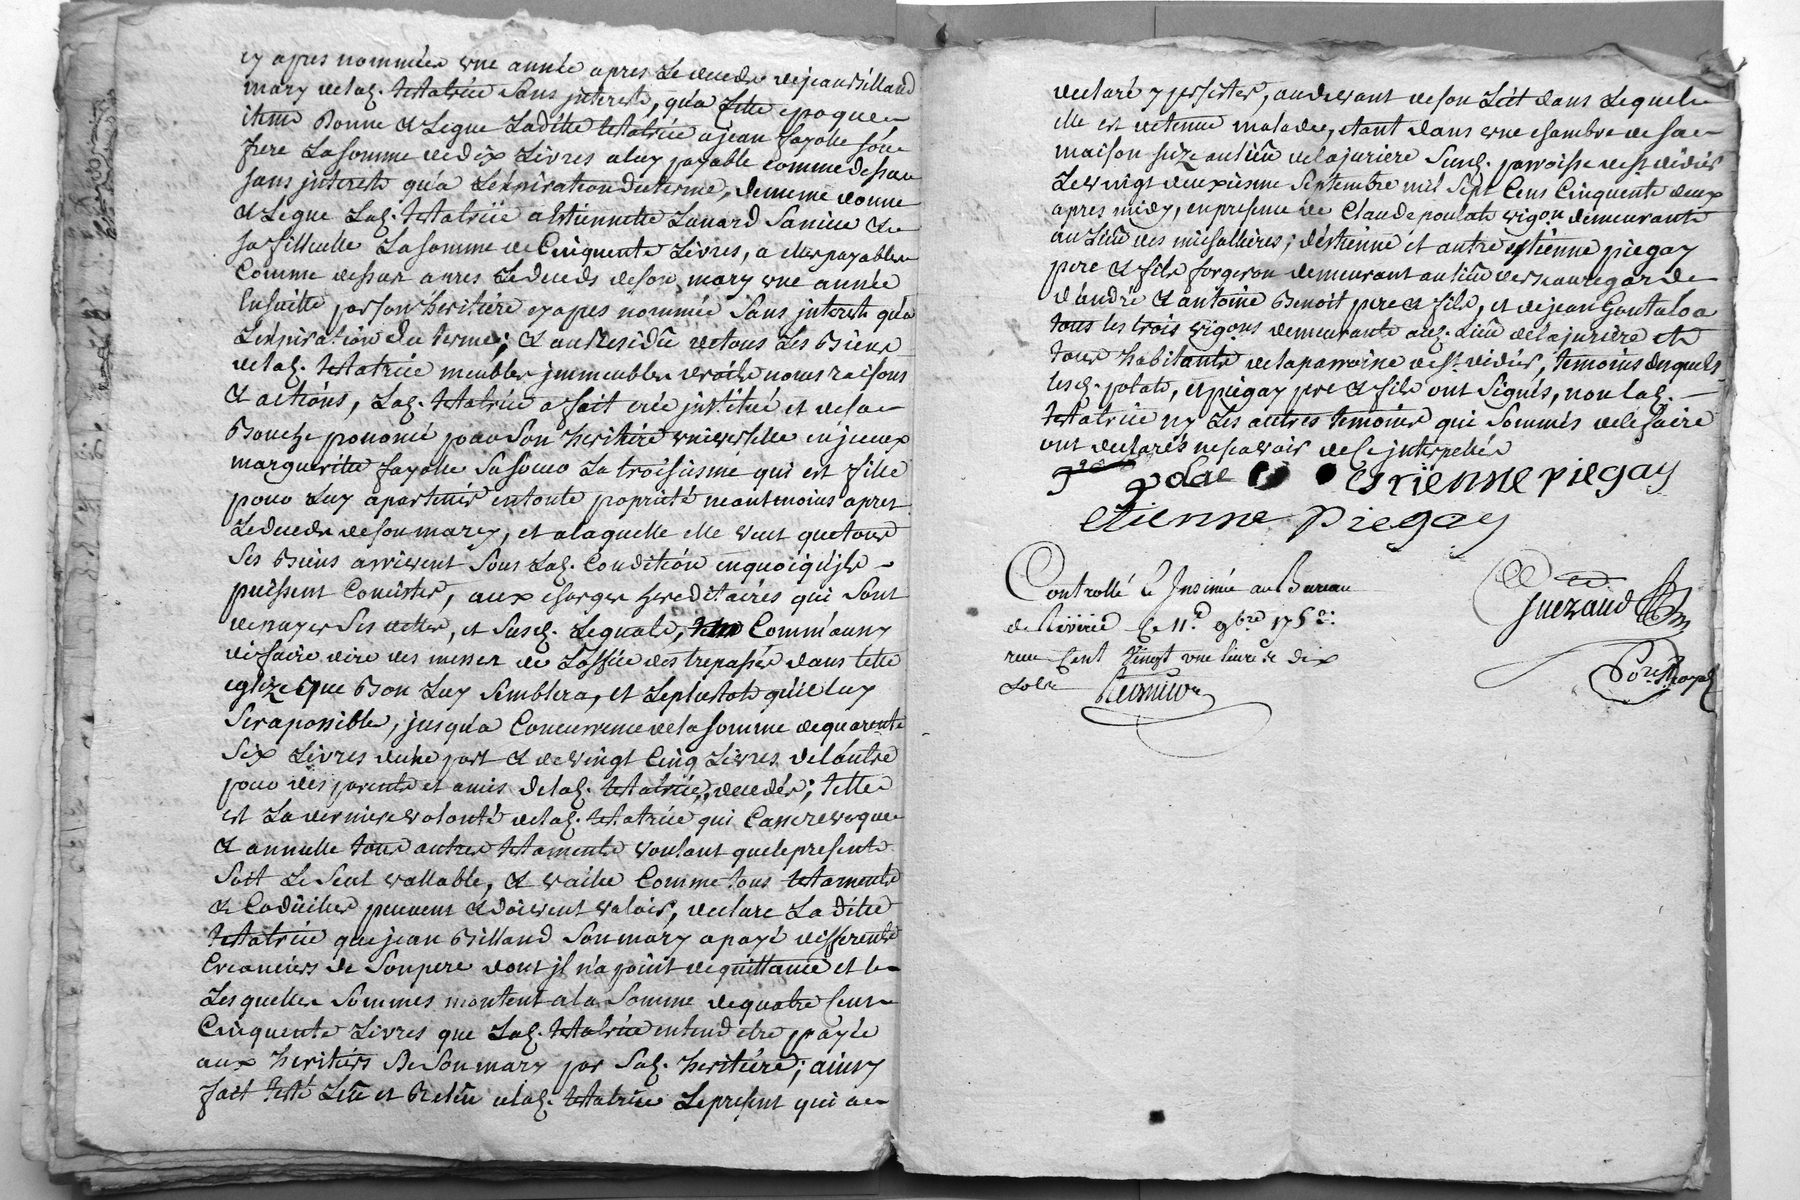 cy apres nommée une année apres le deceds de jean Billand
mary de lad. testatrice sans interests, qu'a cette epoque
item Donne & Legue Laditte testatrice a jean fayolle son
frere La somme de dix Livres a luy payable comme dessus
sans interests qu'a L'expiration du terme, de meme donne
& Legue Lad. testatrice a Estiennette Sa niece &
sa filleulle La somme de Cinquente Livres, a elle payable
Comme dessus apres Le deceds de son mary une année
Ensuitte par son heritiere cy apres nommée Sans interests qu'a
L'expiration du terme; & au Residû de tous Les Biens
de lad. testatrice meubles immeubles droits noms raisons
& actions, Lad. testatrice a fait crée institué et de sa
Bouche pronomé pour Son heritiere universelle
margueritte fayolle Sa soeur La troisiesme qui est fille
pour Luy apartenir en toute proprieté neantmoins apres
Le deceds de son mary, et a laquelle elle veut que tous
Ses Biens arrivent Sous Lad. Condition en quoi qu'ils
puissent Concister, aux charges hereditaires qui Sont
de payer Ses dettes, et Susd. Legats, Comm'aussy
de faire dire des messes de L'office des trepassés dans telle
eglize que Bon Luy Semblera, et Le plustost qu'il luy
Sera possible, jusqu'a Concurrence de la somme de quarente
Six Livres d'une part & de vingt Cinq Livres de l'autre
pour des parents et amis de lad. testatrice, decedés; telle
est La derniere volonté de lad. testatrice qui Casse revoque
& annulle tous autres testaments voulant que le present
Soit Le Seul vallable, & vaille Comme tous testaments
& Codicilles peuvent & doivent valoir, declare La ditte
testatrice que jean Billand Son mary a payé differents
Creanciers de Son pere dont il n'a point de quittance et
Lesquelles Sommes montent a la Somme de quatre Cens
Cinquente Livres que Lad. testatrice entend etre payée
aux heritiers De Son mary par Sad. heritiere; ainsy
fait testé Leû et Releû a lad. testatrice Le present qui a
declaré y persister, au devant de son Lit dans Lequel
elle est detenue malade, etant dans une chambre de sa
maison size au lieû de la juriere Susd. parroisse de st didier
Le vingt deuxiesme Septembre mil Sept Cens Cinquente deux
apres midy, en presence de Claude poulat vigon demeurant
au Lieû des misollieres; d'estienne et autre estienne piegay
pere & fils forgeron demeurant au lieû de Beauregard
d'andré & antoine Benoit pere & fils, et de jean
tous les trois vigons demeurants aud. Lieû de la juriere et
tous habitants de la parroisse de st didier, temoins desquels
lesd. polat, & piegay pere & fils ont Signés, non lad.
testatrice ny Les autres temoins qui Sommés de le faire
ont declarés ne scavoir de ce interpellés
estienne piegay
etienne piegay
Controllé & Insinué au Bureau
de Riverie le 11e 9bre 1752:
reçu Cent Vingt une livre & dix
sols
Guezaud